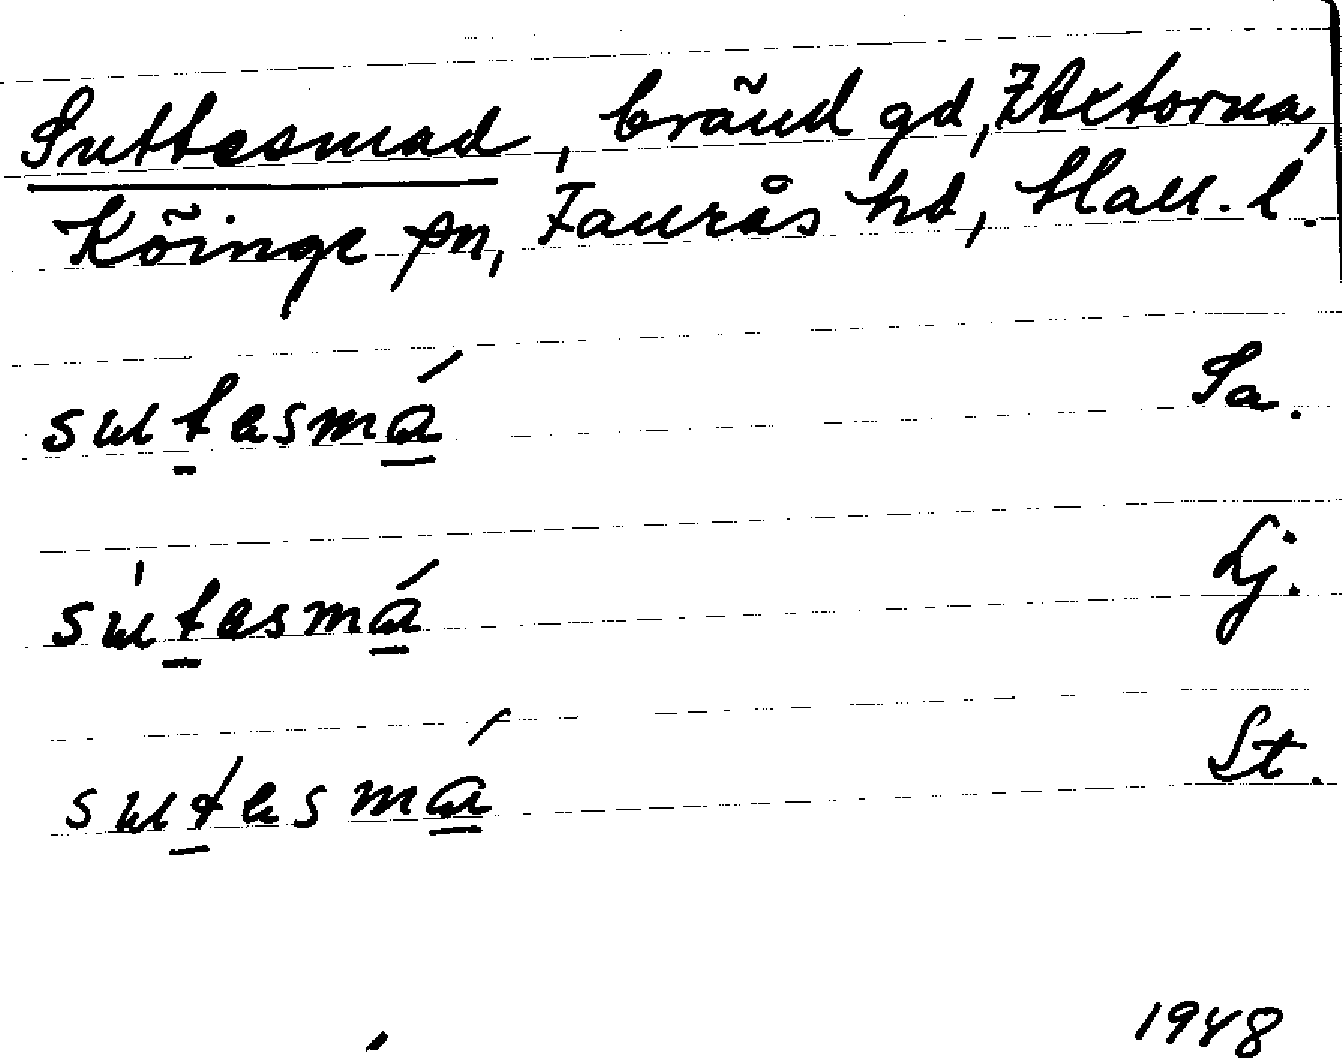 Suttesmad, bränd gd, Axtorna,
Köinge sn, Faurås hd, Hall. l.
sutesmá Sa.
sútesmá Lj.
sutesmá St.
1948